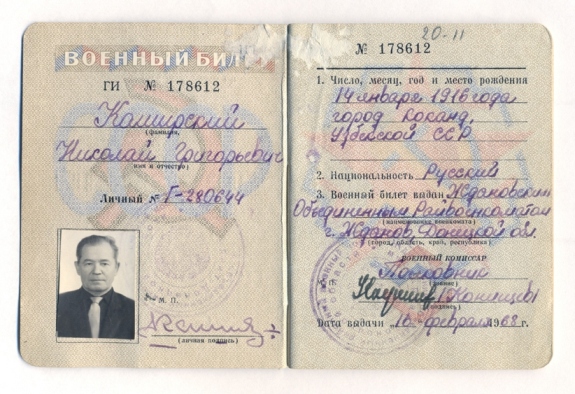 ВОЕННЫЙ БИЛЕТ
ГИ № 178612
Каширский
(фамилия,
Николай Григорьевич
имя и отчество)
Личный № Г-280644
М. П.
(личная подпись)
20-11
№ 178612
1. Число, месяц, год и место рождения
14 января 1916 года
город Коканд,
Узбекской ССР
2. Национальность Русский
3. Военный билет выдан Ждановским
Объединенным Райвоенкоматом
(наименование военкомата)
г. Жданов, Донецкой обл.
(город, область, край, республика)
ВОЕННЫЙ КОМИССАР
Полковник
(подпись)
Дата выдачи „16" февраля 1968 г.